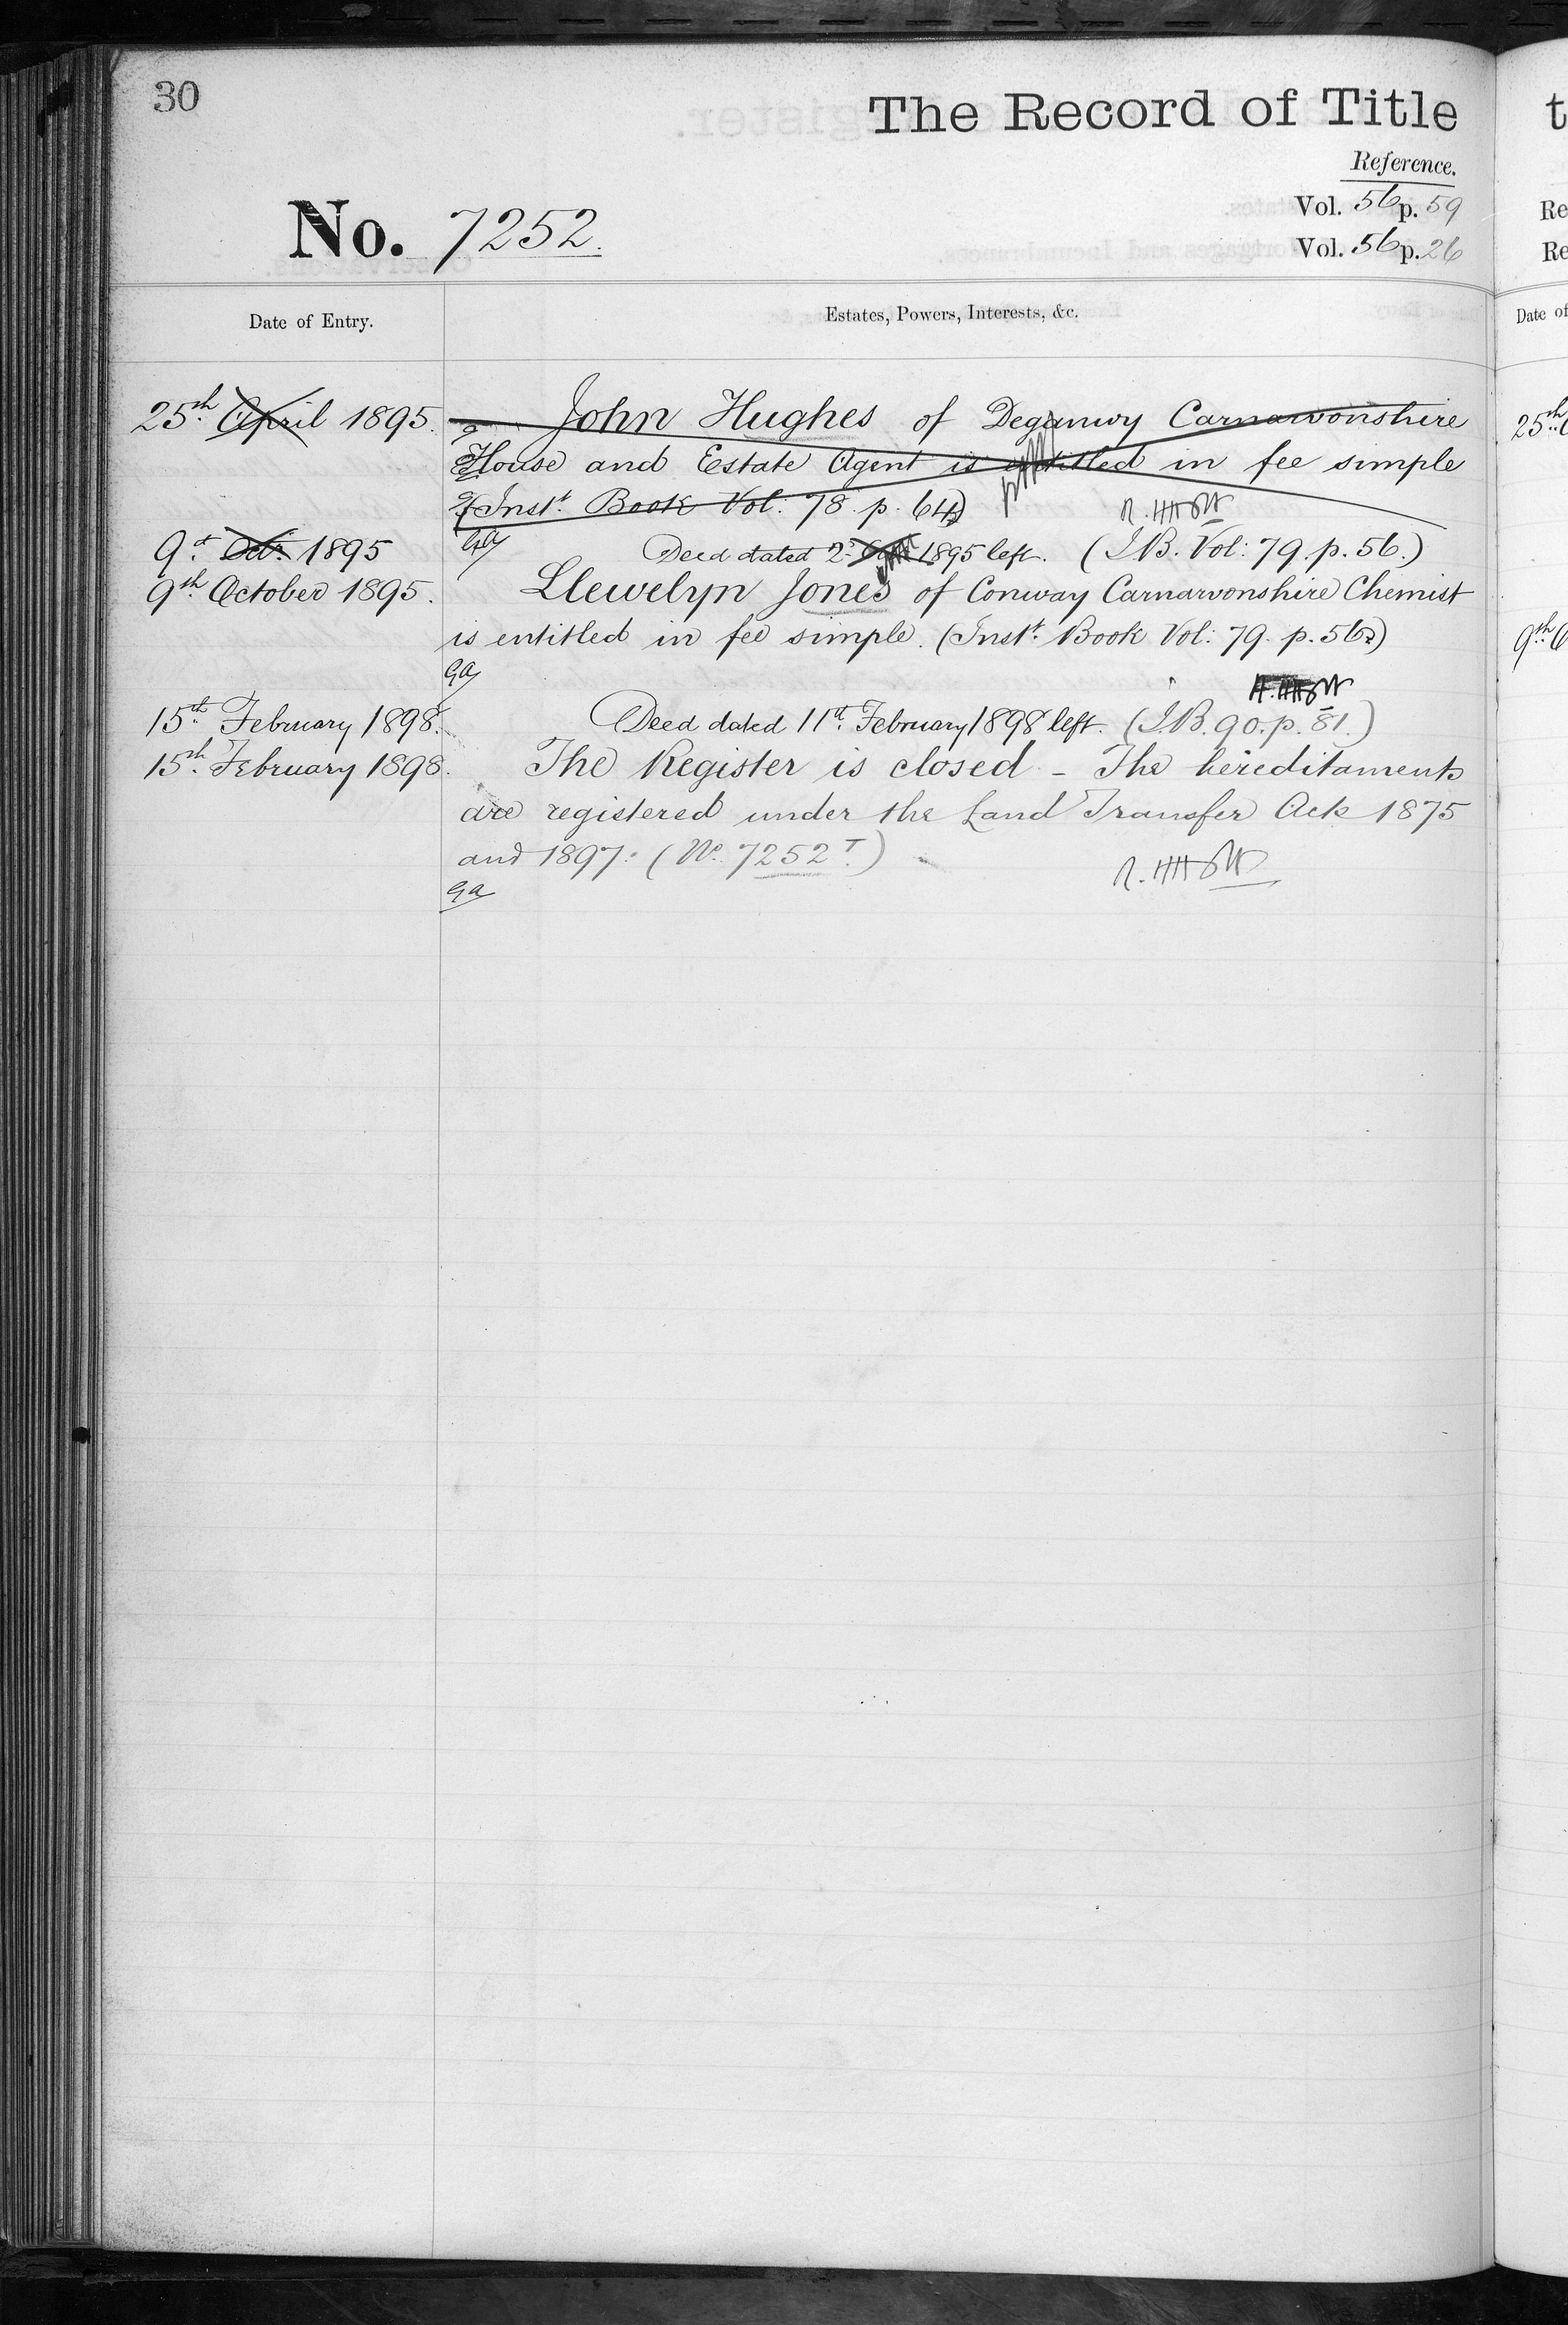 30
The Record of Title
Reference.
Vol. 56 p. 59
No. 7252.
Vol. 56 p. 26
Date of Entry.
Estates, Powers, Interests, &c.
25th. April 1895. John Hughes of Deganwy Carnarvonshire
House and Estate Agent is entitled in fee simple
(Inst. Book Vol: 78. p. 64)
9th. Oct. 1895 Deed dated 2d. 1895 left. (I.B. Vol: 79. p. 56.)
9th October 1895. Llewelyn Jones of Conway Carnarvonshire Chemist
is entitled in fee simple. (Inst. Book Vol: 79. p. 56)
GA
15th. February 1898. Deed dated 11th. February 1898 left. (I.B. 90. p. 81.)
15th. February 1898. The Register is closed - The hereditaments
are registered under the Land Transfer Acts 1875
and 1897. (No. 7252 T.)
GA
t
Re
Re
Date of
25th.
9th.